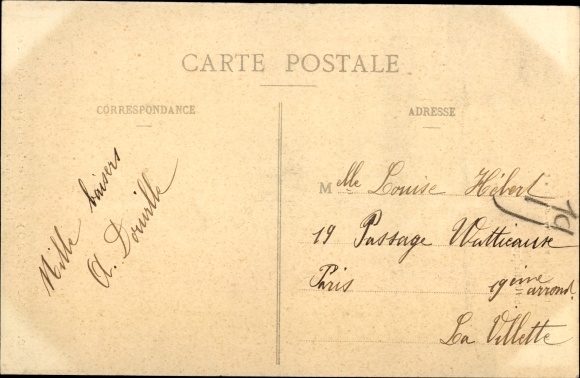 CARTE POSTALE
CORRESPONDANCE
ADRESSE
Mille baisers
A. Douville
Melle Louise Hébert
19 Passage Watticaux
Paris 19ème arrond.
La Villette
19